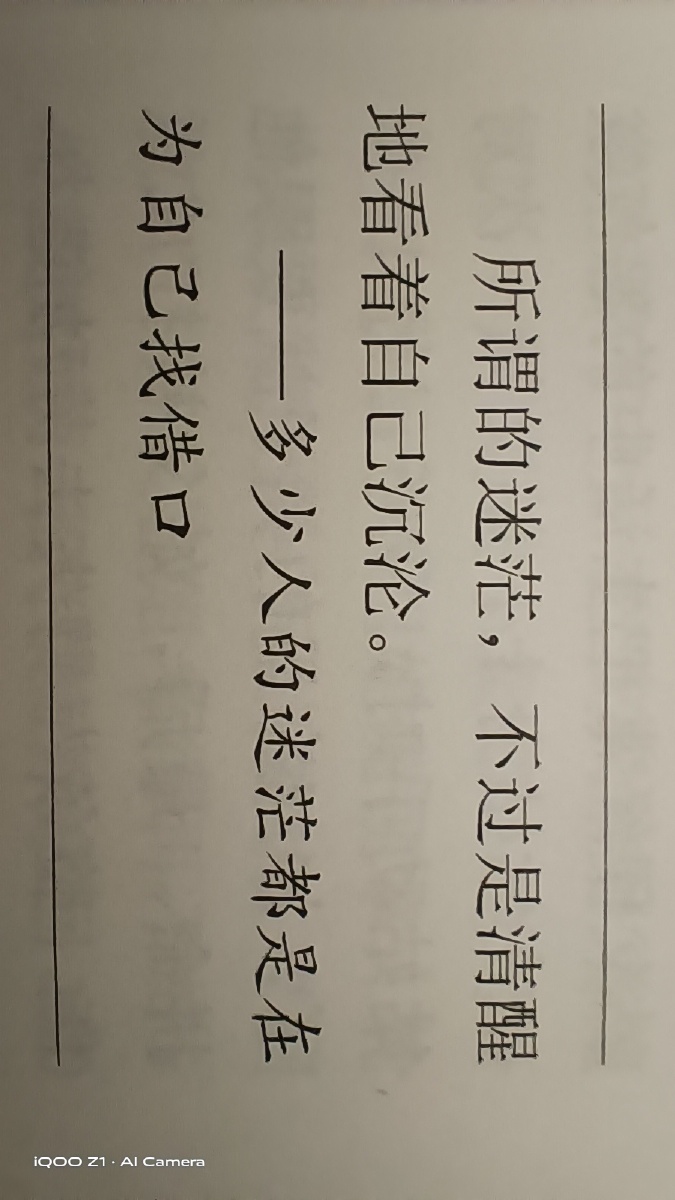 所谓的迷茫，不过是清醒
地看着自己沉沦。
——多少人的迷茫都是在
为自己找借口
iQOO Z1 · AI Camera